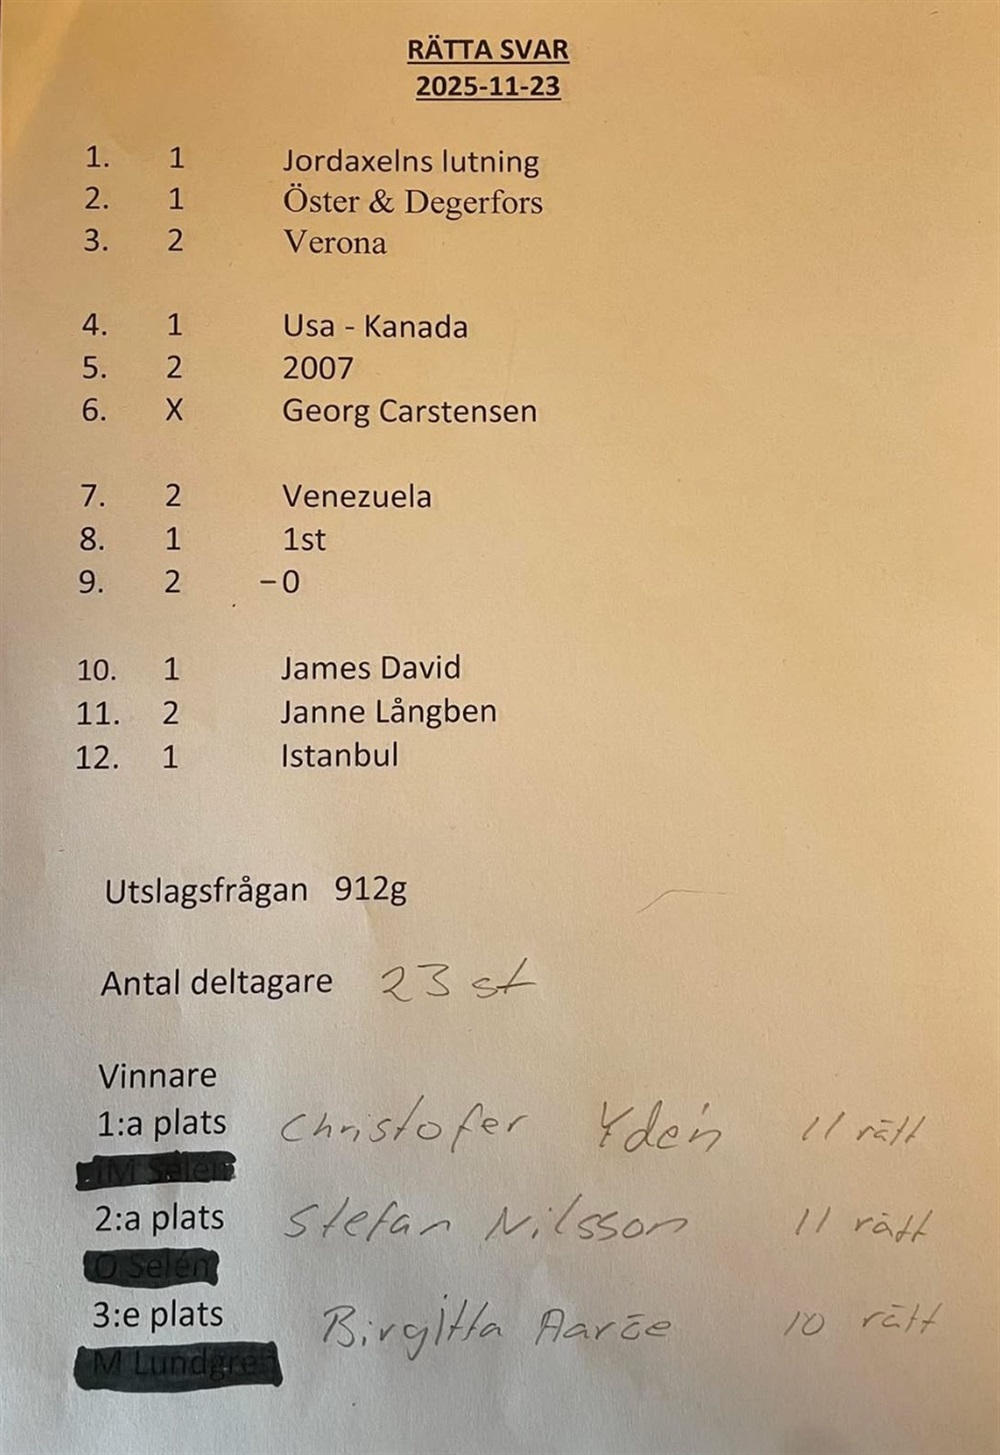 RÄTTA SVAR
2025-11-23
1. 1 Jordaxelns lutning
2. 1 Öster & Degerfors
3. 2 Verona
4. 1 Usa - Kanada
5. 2 2007
6. X Georg Carstensen
7. 2 Venezuela
8. 1 1st
9. 2 –0
10. 1 James David
11. 2 Janne Långben
12. 1 Istanbul
Utslagsfrågan 912g
Antal deltagare 23 st
Vinnare
1:a plats Christofer Ydén 11 rätt
2:a plats Stefan Nilsson 11 rätt
3:e plats Birgitta 10 rätt